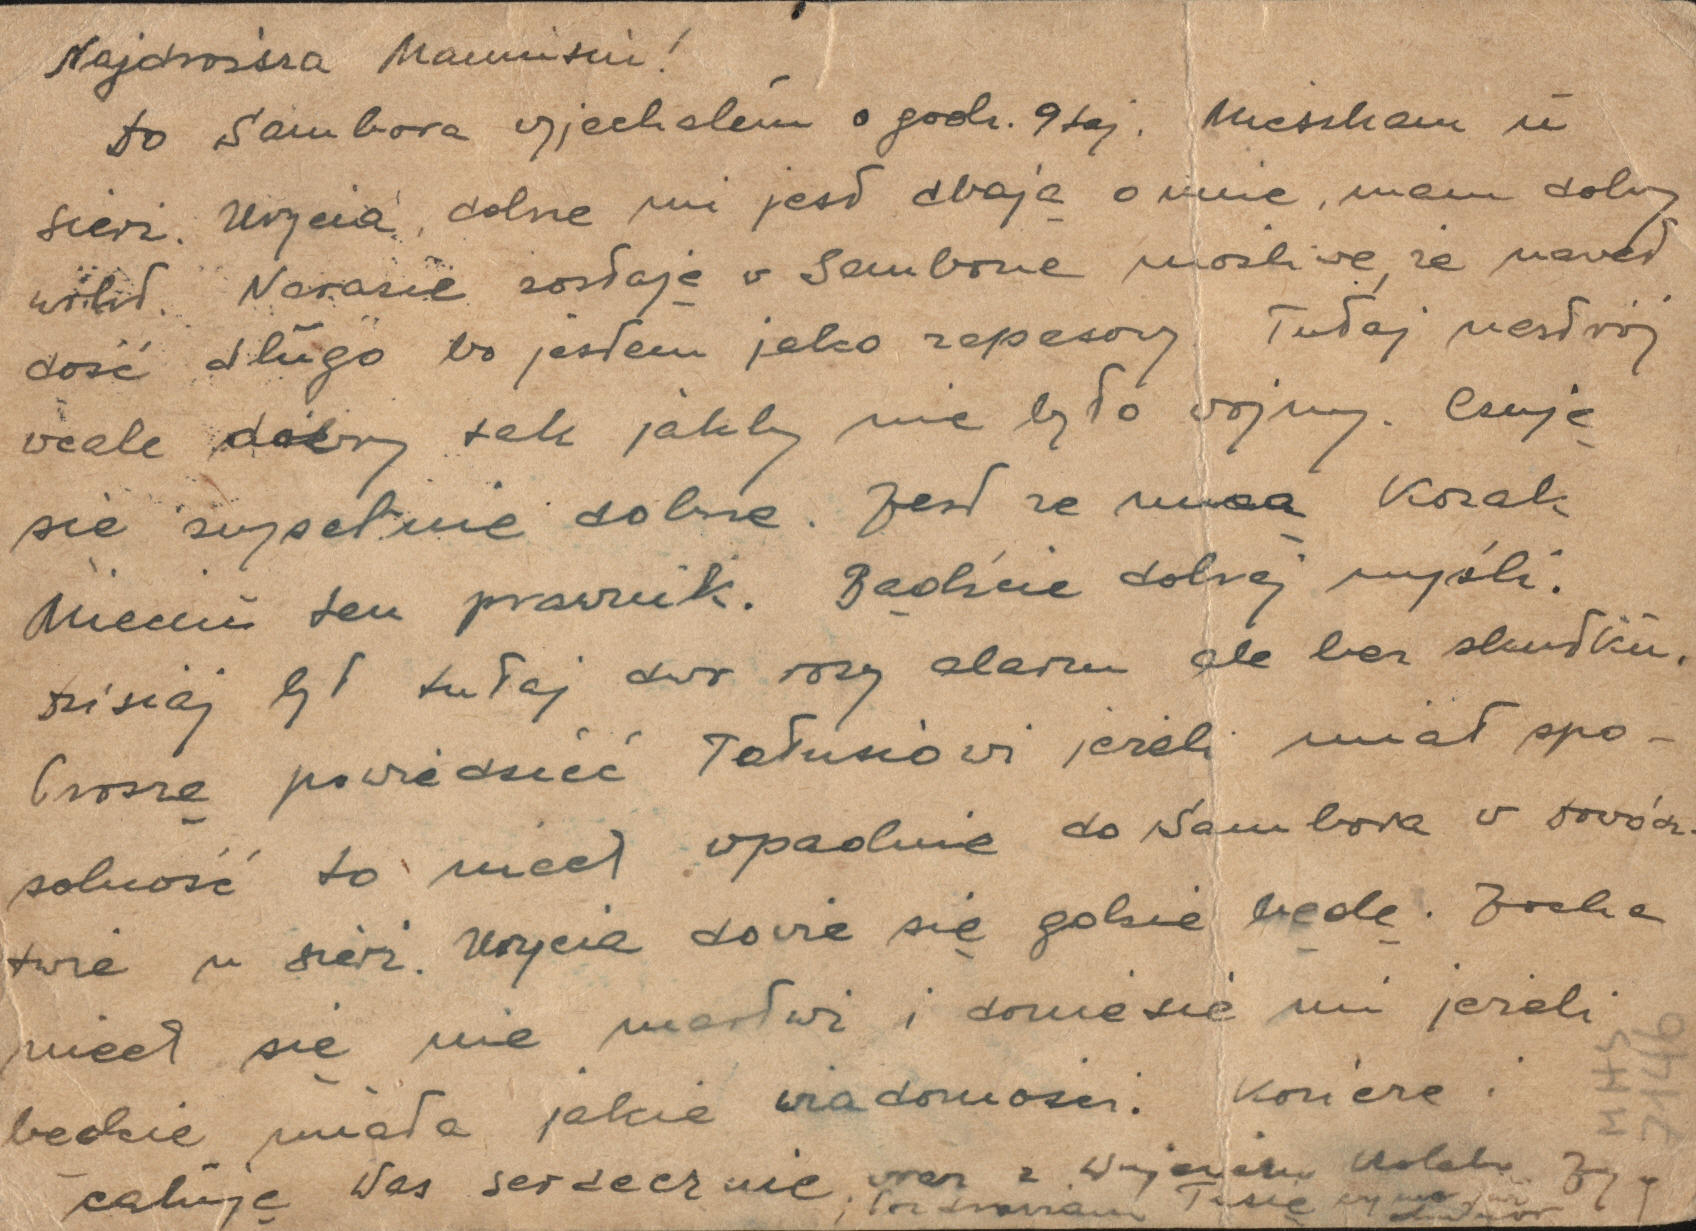 Najdroższa Mamusiu!
Do Sambora wjechałem o godz. 9tej. Mieszkam u
sierż. Urycia, dobrze mi jest dbają o mnie, mam dobry
wikt. Narazie zostaję w Samborze możliwe, że nawet
dość długo bo jestem jako zapasowy Tutaj nastrój
wcale dobry tak jakby nie było wojny. Czuję
się zupełnie dobrze. Jest ze mną Kozak
Mieciu ten prawnik. Bądźcie dobrej myśli.
Dzisiaj był tutaj dwa razy alarm ale bez skutku.
Proszę powiedzieć Tatusiowi jeżeli miał spo-
sobność to niech wpadnie do Sambora w dowódz-
twie u sierż. Urycia dowie się gdzie będę. Zocha
niech się nie martwi i doniesie mi jeżeli
będzie miała jakie wiadomości. Kończę i
całuję Was serdecznie, wraz z Wujciem
Pozdrawiam
MHS
7146